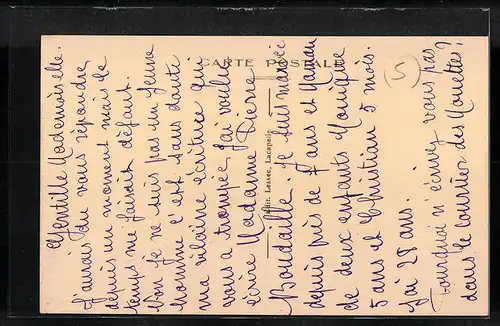 CARTE POSTALE
5
Edit. Lessée, Lacapelle
Gentille Mademoiselle.
J'aurais du vous répondre
depuis un moment mais le
temps me faisait défaut.
Non je ne suis pas un jeune
homme c'est sans doute
ma vilaine écriture qui
vous a trompée, j'ai voulu
écrire Madame Pierre
Boudaille. Je suis mariée
depuis près de 7 ans et Maman
de deux enfants Monique
5 ans et Christian 5 mois.
J'ai 28 ans.
Pourquoi n'écrivez vous pas
dans le courrier des Mouettes?